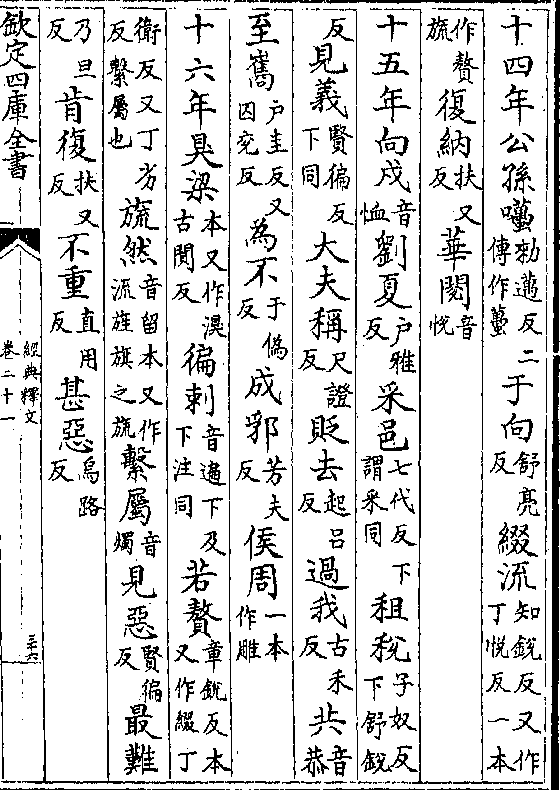 十四年公孫囆勑邁反二傳作蠆于向舒亮反綴流知銳反又作丁悅反一本
作贅旒復納扶又反華閱音悅
十五年向戌音恤劉夏户雅反采邑七代反下謂采同租稅子奴反下舒銳
反見義賢徧反下同大夫稱尺證反貶去起呂反過我古禾反共音恭
至巂户圭反又囚兖反為不于偽反成郛芳夫反侯周一本作雕
十六年狊梁本又作湨古闃反徧刺音遍下及下注同若贅章銳反本又作綴丁
衛反又丁劣反繫屬也旒然音留本又作流旌旗之旒繫屬音燭見惡賢徧反最難
乃旦反肯復扶又反不重直用反甚惡烏路反
欽定四庫全書
經典釋文
卷二十一
三十六